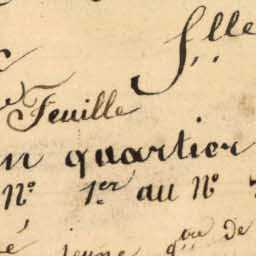 S.lle
Feuille
quartier
N° 1er au N°
jeune gre De